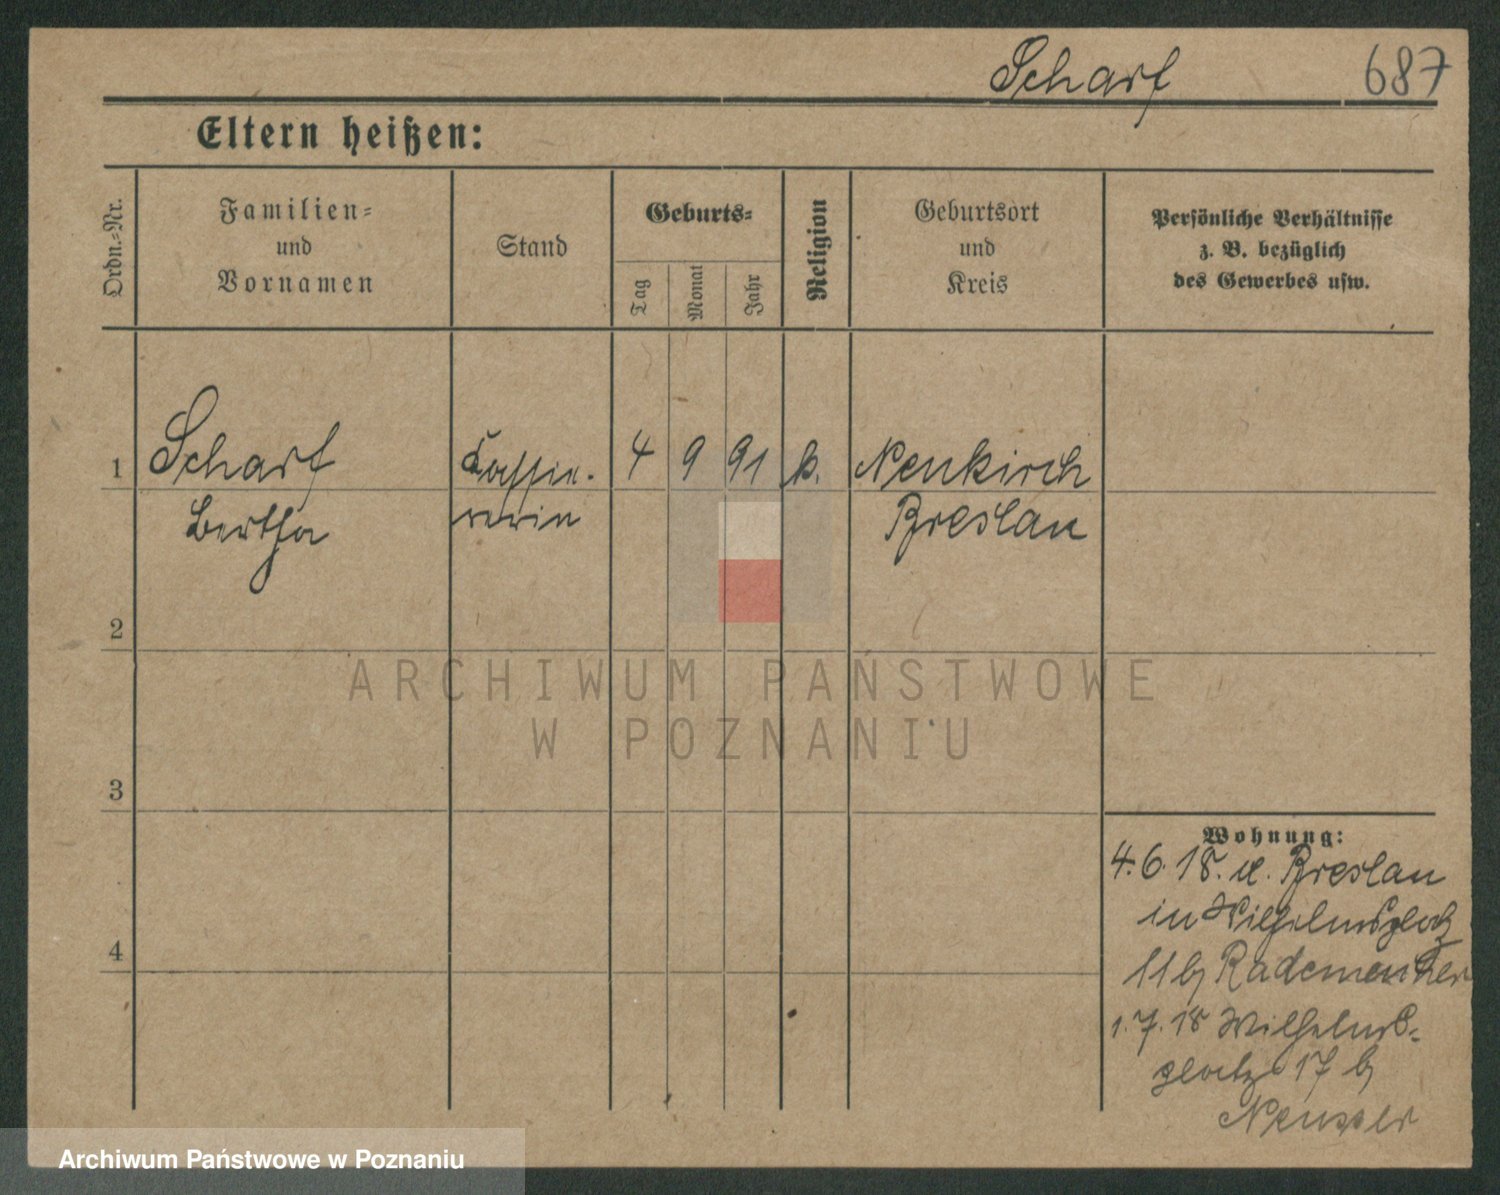 Scharf 687
Eltern heißen:
Ordn.-Nr.
Familien-
und
Vornamen
Stand
Geburts-
Tag
Monat
Jahr
Religion
Geburtsort
und
Kreis
Persönliche Verhältnisse
z. B. bezüglich
des Gewerbes usw.
1 Scharf Kassie- 4 9 91 k. Neukirch
Bertha rerin Breslau
2
3
4
Wohnung:
4.6.18. v. Breslau
in Wilhelmsplatz
11 bj Rademacher
1.7.18 Wilhelms-
platz 17 bj
ARCHIWUM PAŃSTWOWE
W POZNANIU
Archiwum Państwowe w Poznaniu